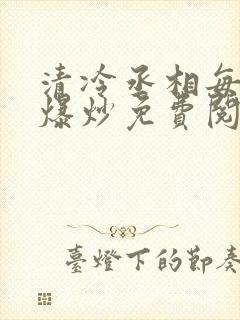 清冷丞相每
爆炒免費閱
臺燈下的節奏